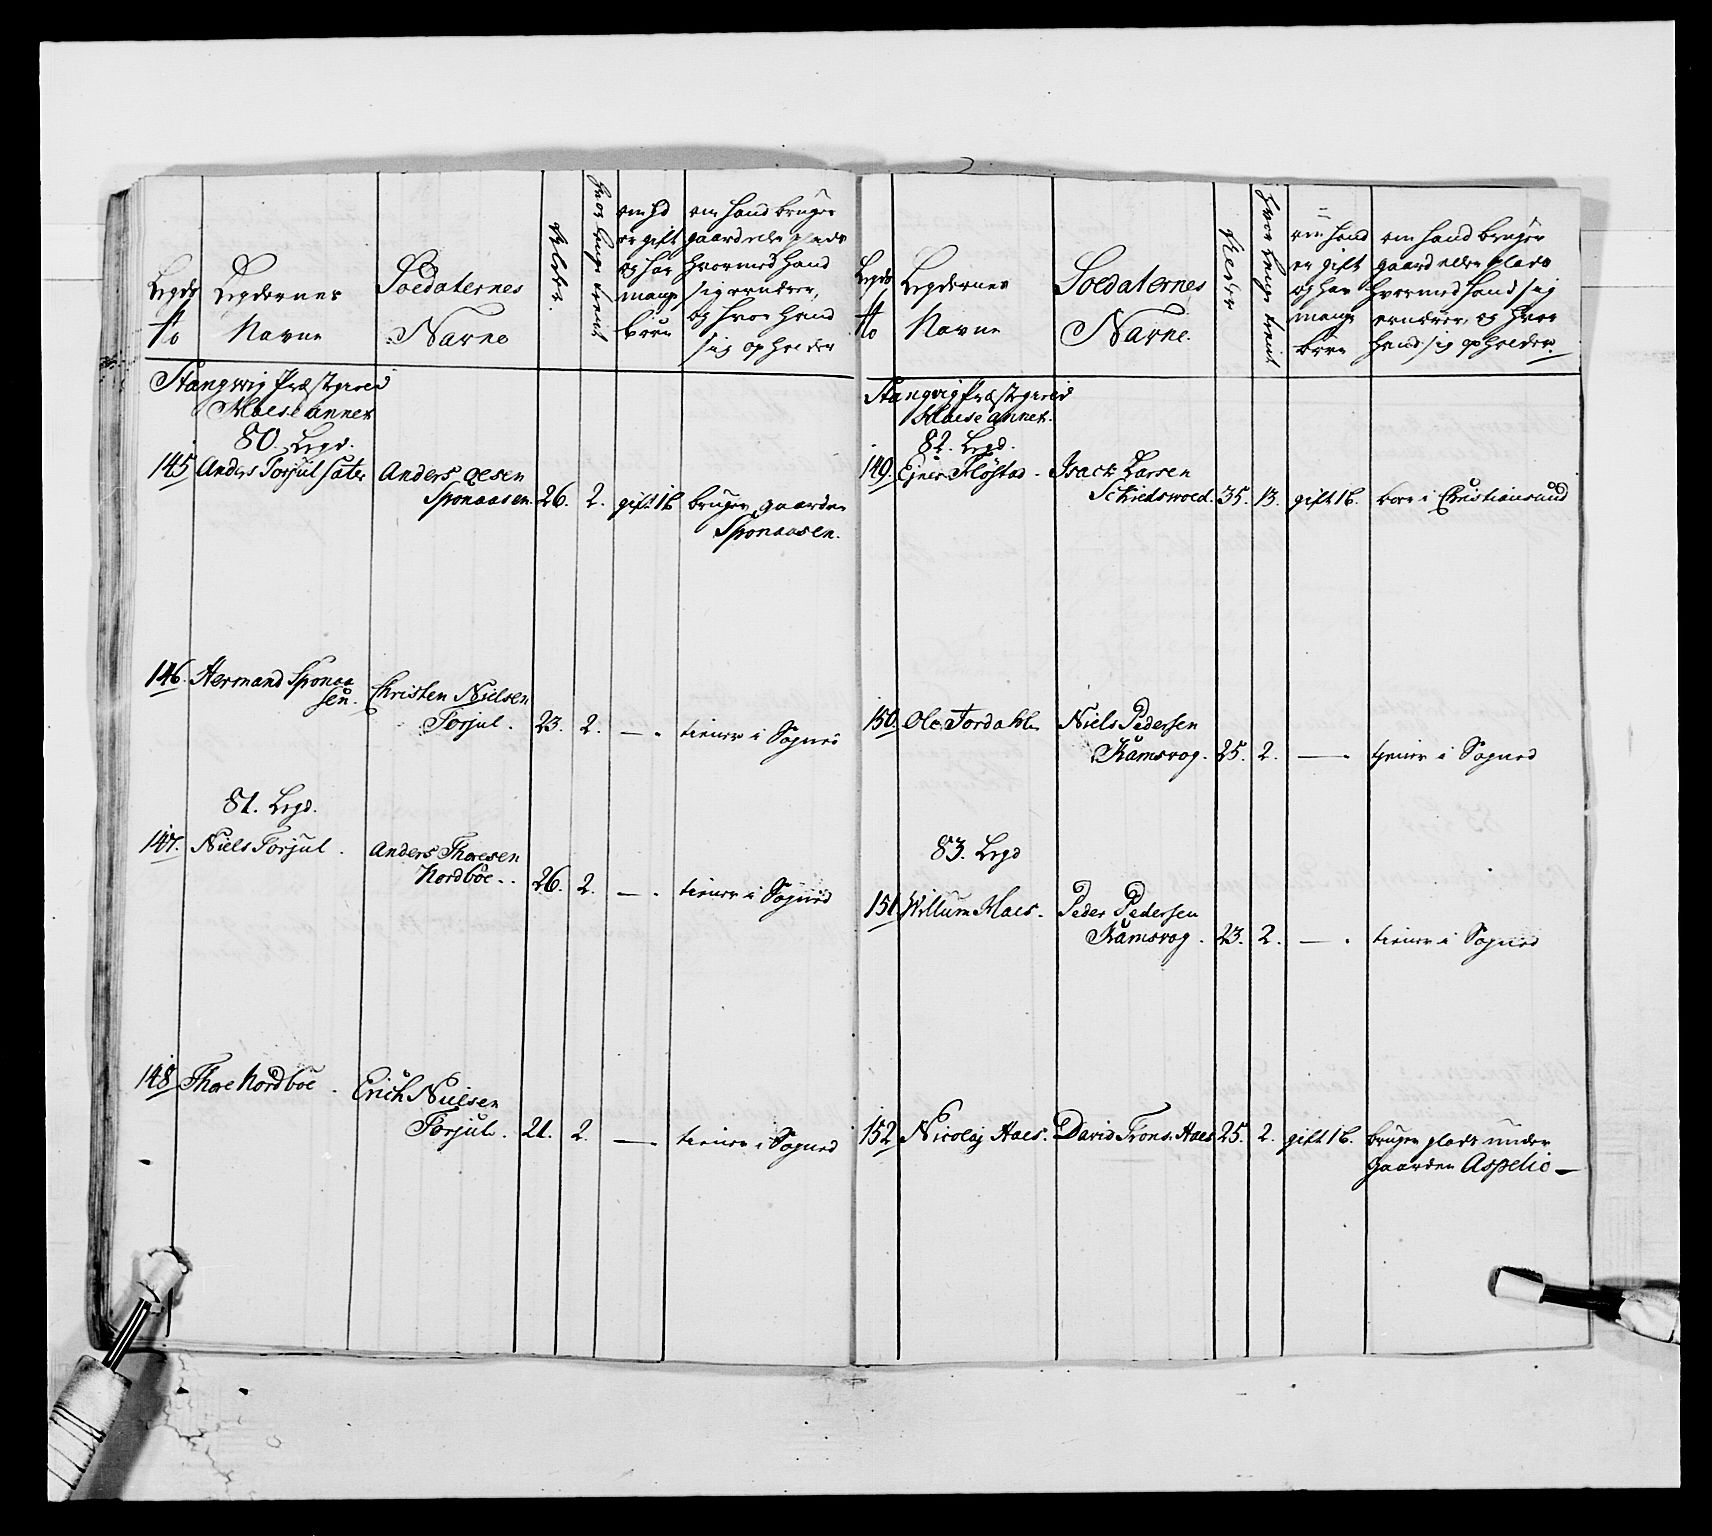 Legds No
Legdernes Navne
Soldaternes Navne
Alder.
hvor lenge tient
om hd er gift og har mange børn
om hand bruger gaard eller plads hvormed hand sig ernærer, og hvor hand sig opholder
Stangwig Præstgield
80. Legd.
145 Anders Torjulsäter Anders Olesen
Sponaasen. 26. 2. gift 1 b bruger gaarden
Sponaasen.
146. Hermand Sponaa
sen. Christen Nielsen
Torjul. 23. 2. — . tiener i Sognet
81. Legd.
147. Niels Torjul. Anders Thoresen
Nordbøe. 26. 2. — . tiener i Sogned
148 Thore Nordbøe. Erich Nielsen
Torjul. 21. 2. — . tiener i Sogned
Legds No
Legdernes Navne
Soldaternes Navne.
Alder
hvor lenge tient
om hand er gift og har mange børn
om hand bruger gaard eller plads hvormed hand sig ernærer, og hvor hand sig opholder.
Stangvig Præstgield
82. Legd.
149. Ejner Isack Larsen
35. 13. gift 1 b. boer i Christiansund
150. Ole Niels Pedersen
Kamsvog. 25. 2. — . tjener i Sogned
83. Legd
151 Willum Peder Pedersen
Kamsvog. 23. 2. — . tiener i Sogned
152 Nicolaj Aaes. David Trons. Aaes 25. 2. gift 1 b. bruger plads under
gaarden Aspelie —